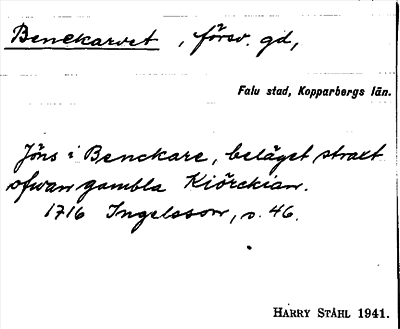 Benckarvet, försv. gd,
Falu stad, Kopparbergs län.
Jöns i Benckare, beläget straxt
ofwan gambla Kiörckian.
1716 Ingelsson, s. 46.
HARRY STÅHL 1941.